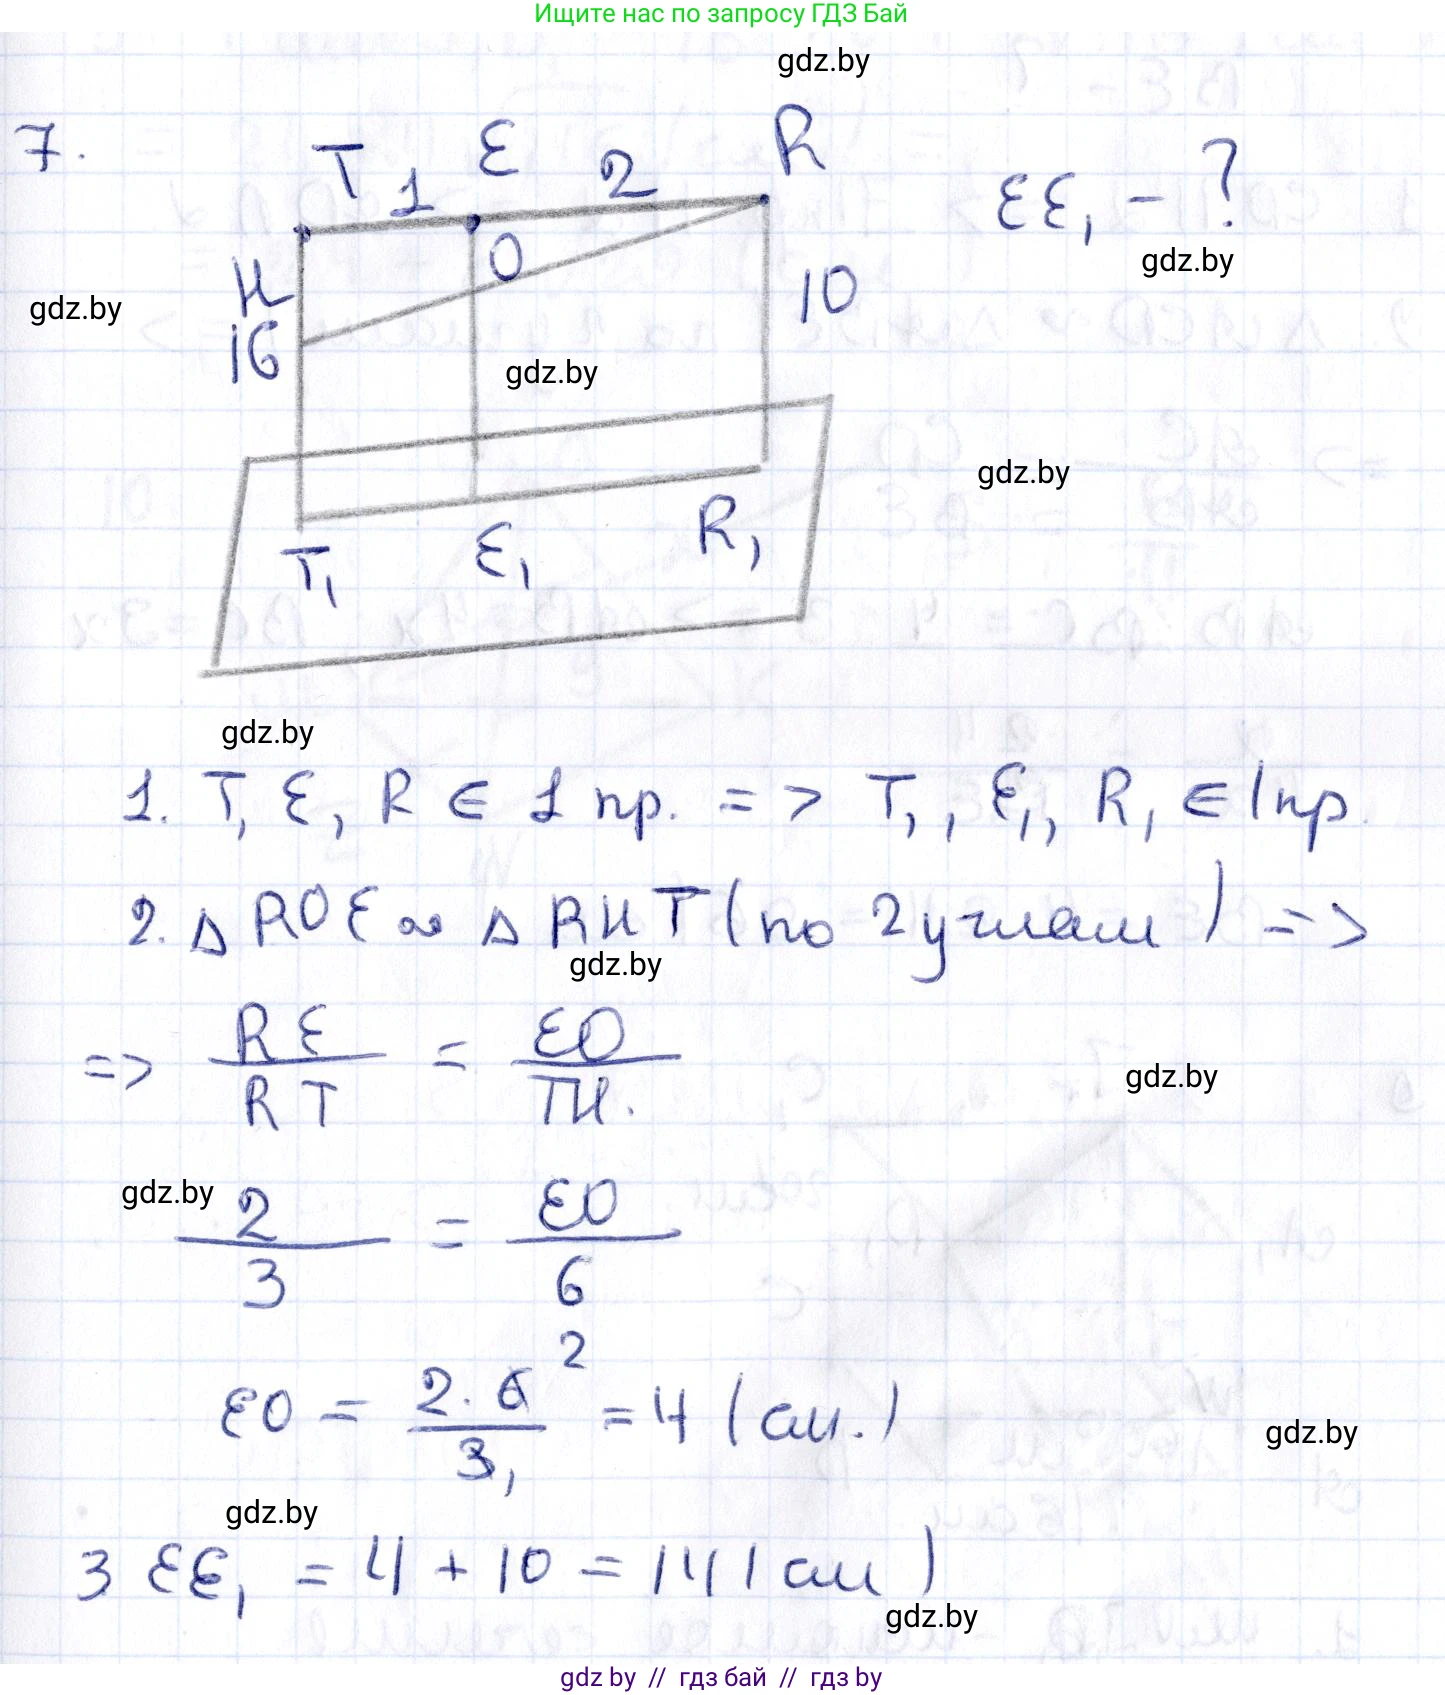 Ищите нас по запросу ГДЗ Бай
gdz.by
7.
T 1 Ɛ 2 R
ƐƐ₁ - ?
gdz.by
O
H
10
gdz.by
16
gdz.by
gdz.by
R₁
T₁ Ɛ₁
gdz.by
1. T, Ɛ, R ∈ 1 пр. => T₁, Ɛ₁, R₁ ∈ 1 пр.
2. Δ ROƐ ∾ Δ RHT (по 2 углам) =>
gdz.by
=> RƐ/RT = ƐO/TH.
gdz.by
gdz.by
2/3 = ƐO/6
ƐO = 2·6²/3₁ = 4 (см.)
gdz.by
gdz.by
3 ƐƐ₁ = 4 + 10 = 14 (см)
gdz.by
gdz by // гдз бай // гдз by